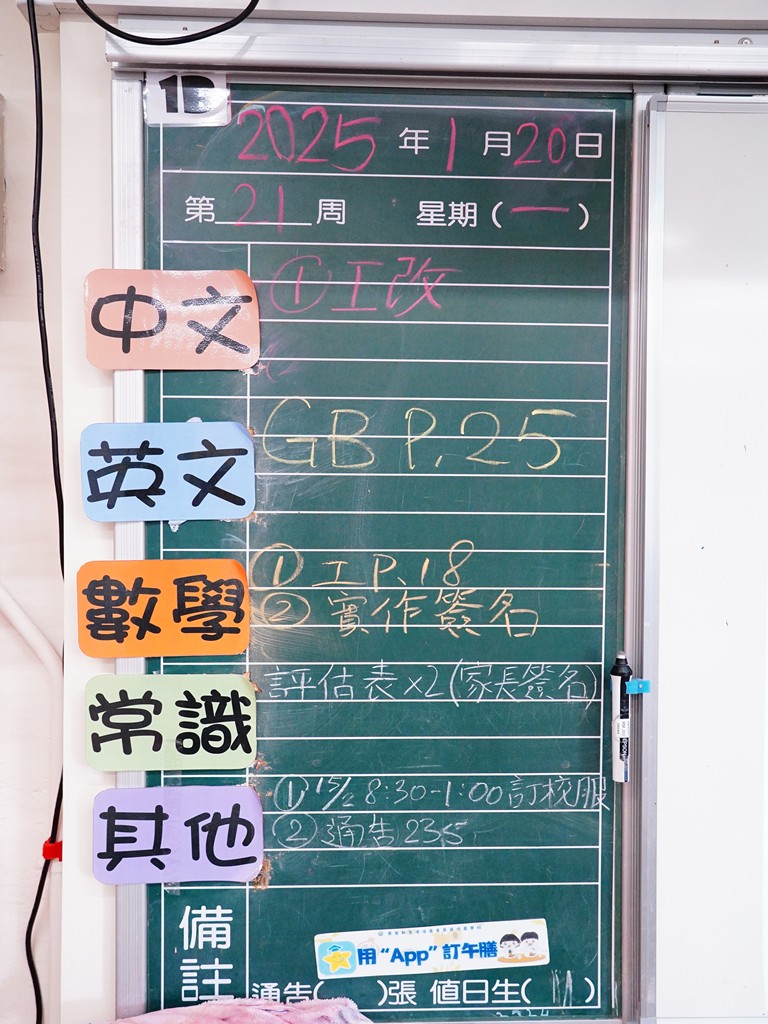 1D
2025年1月20日
第21周 星期(一)
中文
①工改
英文
GB P.25
數學
①工P.18
②實作簽名
常識
評估表x2(家長簽名)
其他
①15/2 8:30-1:00訂校服
②通告235
備註
用“App”訂午膳
通告( )張 值日生( )
EPSON